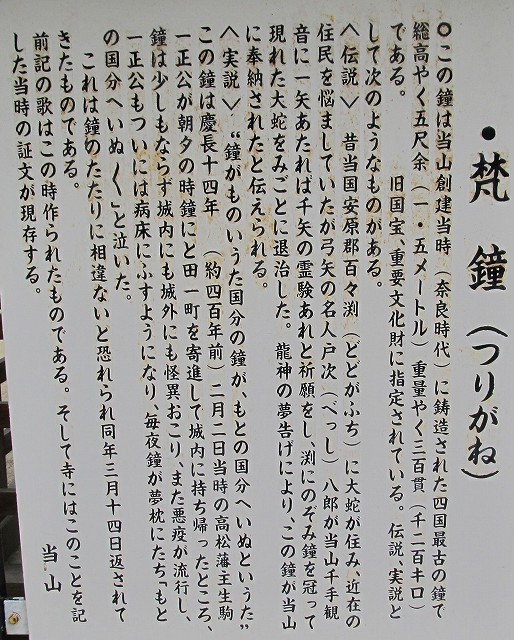 ・梵 鐘（つりがね）
○この鐘は当山創建当時（奈良時代）に鋳造された四国最古の鐘で
総高やく五尺余（一・五メートル）重量やく三百貫（千二百キロ）
である。 旧国宝、重要文化財に指定されている。伝説、実説と
して次のようなものがある。
〈伝説〉 昔当国安原郡百々渕（どどがふち）に大蛇が住み、近在の
住民を悩ましていたが弓矢の名人戸次（べっし）八郎が当山千手観
音に一矢あたれば千矢の霊験あれと祈願をし、渕にのぞみ鐘を冠って
現れた大蛇をみごとに退治した。龍神の夢告げにより、この鐘が当山
に奉納されたと伝えられる。
〈実説〉 “鐘がものいうた国分の鐘が、もとの国分へいぬというた”
この鐘は慶長十四年 （約四百年前）二月二日当時の高松藩王生駒
一正公が朝夕の時鐘にと田一町を寄進して城内に持ち帰ったところ、
鐘は少しもならず城内にも城外にも怪異おこり、また悪疫が流行し、
一正公もついには病床にふすようになり、毎夜鐘が夢枕にたち「もと
の国分へいぬ〱」と泣いた。
これは鐘のたたりに相違ないと恐れられ同年三月十四日返されて
きたものである。
前記の歌はこの時作られたものである。そして寺にはこのことを記
した当時の証文が現存する。
当・山